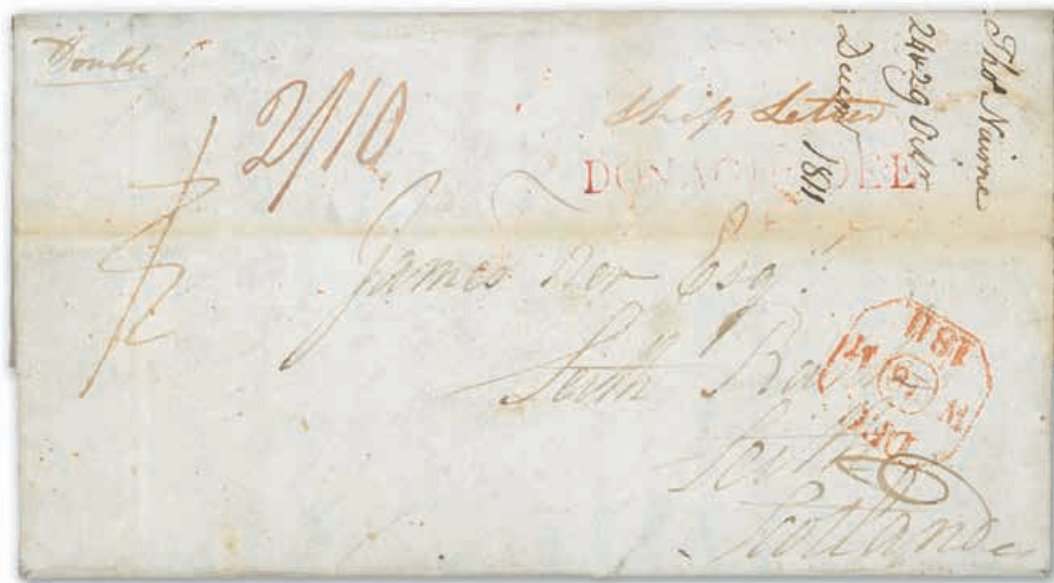 Double
2/10
Ship Letter
DONAGHADEE
Thos Nairne
24 & 29 Octr
1811
James Ker Esqr
Leith Bank
Leith
Scotland
DEC
1811